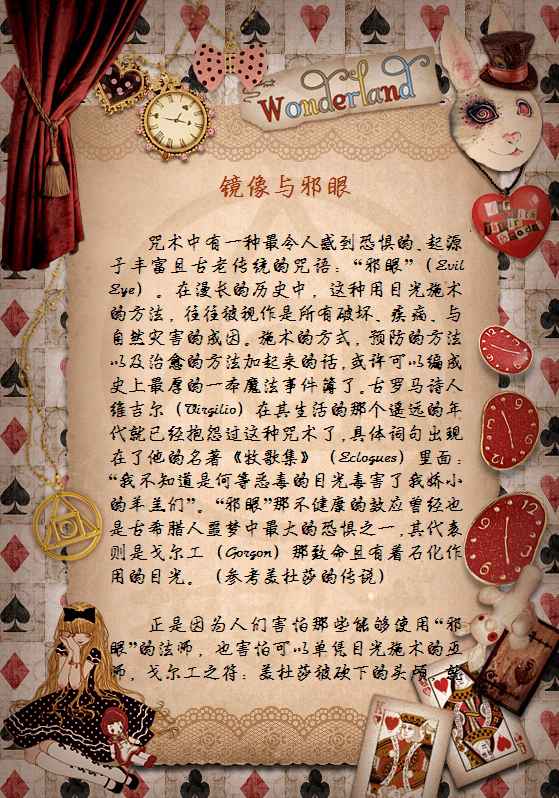 Wonderland
镜像与邪眼
咒术中有一种最令人感到恐惧的、起源
于丰富且古老传统的咒语：“邪眼”（Evil
Eye）。在漫长的历史中，这种用目光施术
的方法，往往被视作是所有破坏、疾病、与
自然灾害的成因。施术的方式，预防的方法
以及治愈的方法加起来的话，或许可以编成
史上最厚的一本魔法事件簿了。古罗马诗人
维吉尔（Virgilio）在其生活的那个遥远的年
代就已经抱怨过这种咒术了，具体词句出现
在了他的名著《牧歌集》（Eclogues）里面：
“我不知道是何等恶毒的目光毒害了我娇小
的羊羔们”。“邪眼”那不健康的效应曾经也
是古希腊人噩梦中最大的恐惧之一，其代表
则是戈尔工（Gorgon）那致命且有着石化作
用的目光。（参考美杜莎的传说）
正是因为人们害怕那些能够使用“邪
眼”的法师，也害怕可以单凭目光施术的巫
师，戈尔工之符：美杜莎被砍下的头颅，就